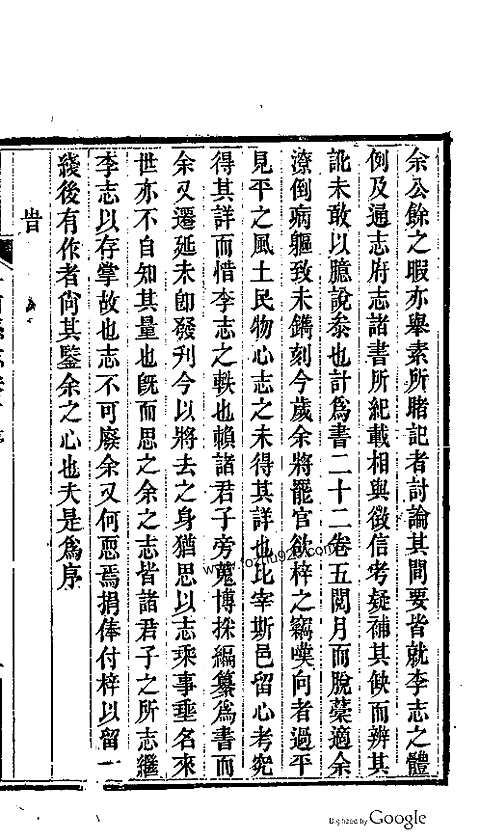 余公餘之暇亦舉素所睹記者討論其間要皆就李志之體
例及通志府志諸書所紀載相與徵信考疑補其缺而辨其
訛未敢以臆說叅也計爲書二十二卷五閱月而脫藁適余
潦倒病軀致未鐫刻今歲余將罷官欲梓之竊嘆向者過平
見平之風土民物心志之未得其詳也比宰斯邑留心考究
得其詳而惜李志之軼也賴諸君子旁蒐博採編纂爲書而
余又遷延未卽發刊今以將去之身猶思以志乘事垂名來
世亦不自知其量也旣而思之余之志皆諸君子之所志繼
李志以存掌故也志不可廢余又何恧焉捐俸付梓以留一
綫後有作者尙其鑒余之心也夫是爲序
旹
www.fozhu920.com
Digitized by Google